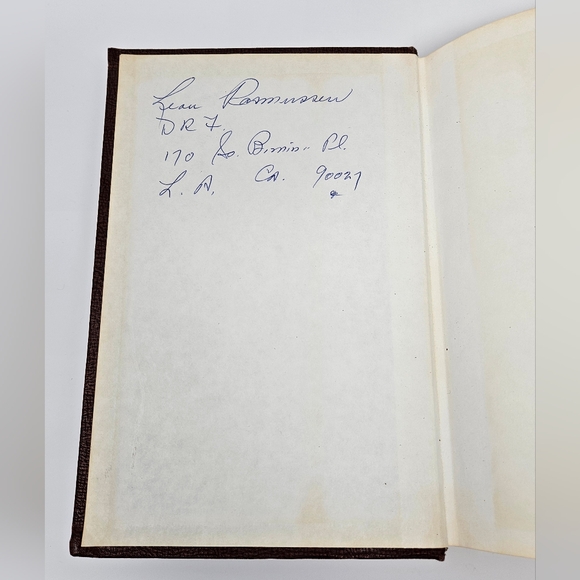 Jean Rasmussen
D R F.
170 So. Bimini Pl.
L. A, CA. 90027